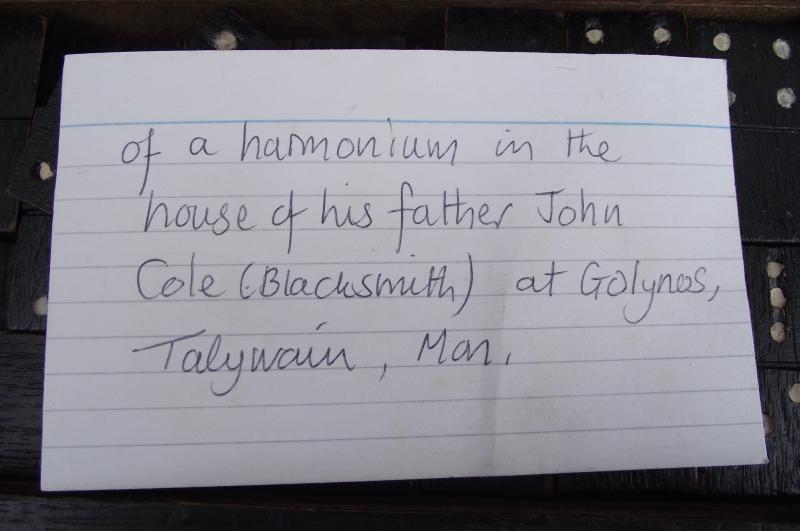 of a harmonium in the
house of his father John
Cole (Blacksmith) at Golynos,
Talywain, Mon.